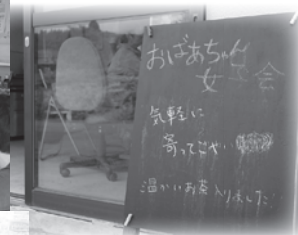 おばあちゃん
女子会
気軽に
寄ってごやい
温かいお茶入りました